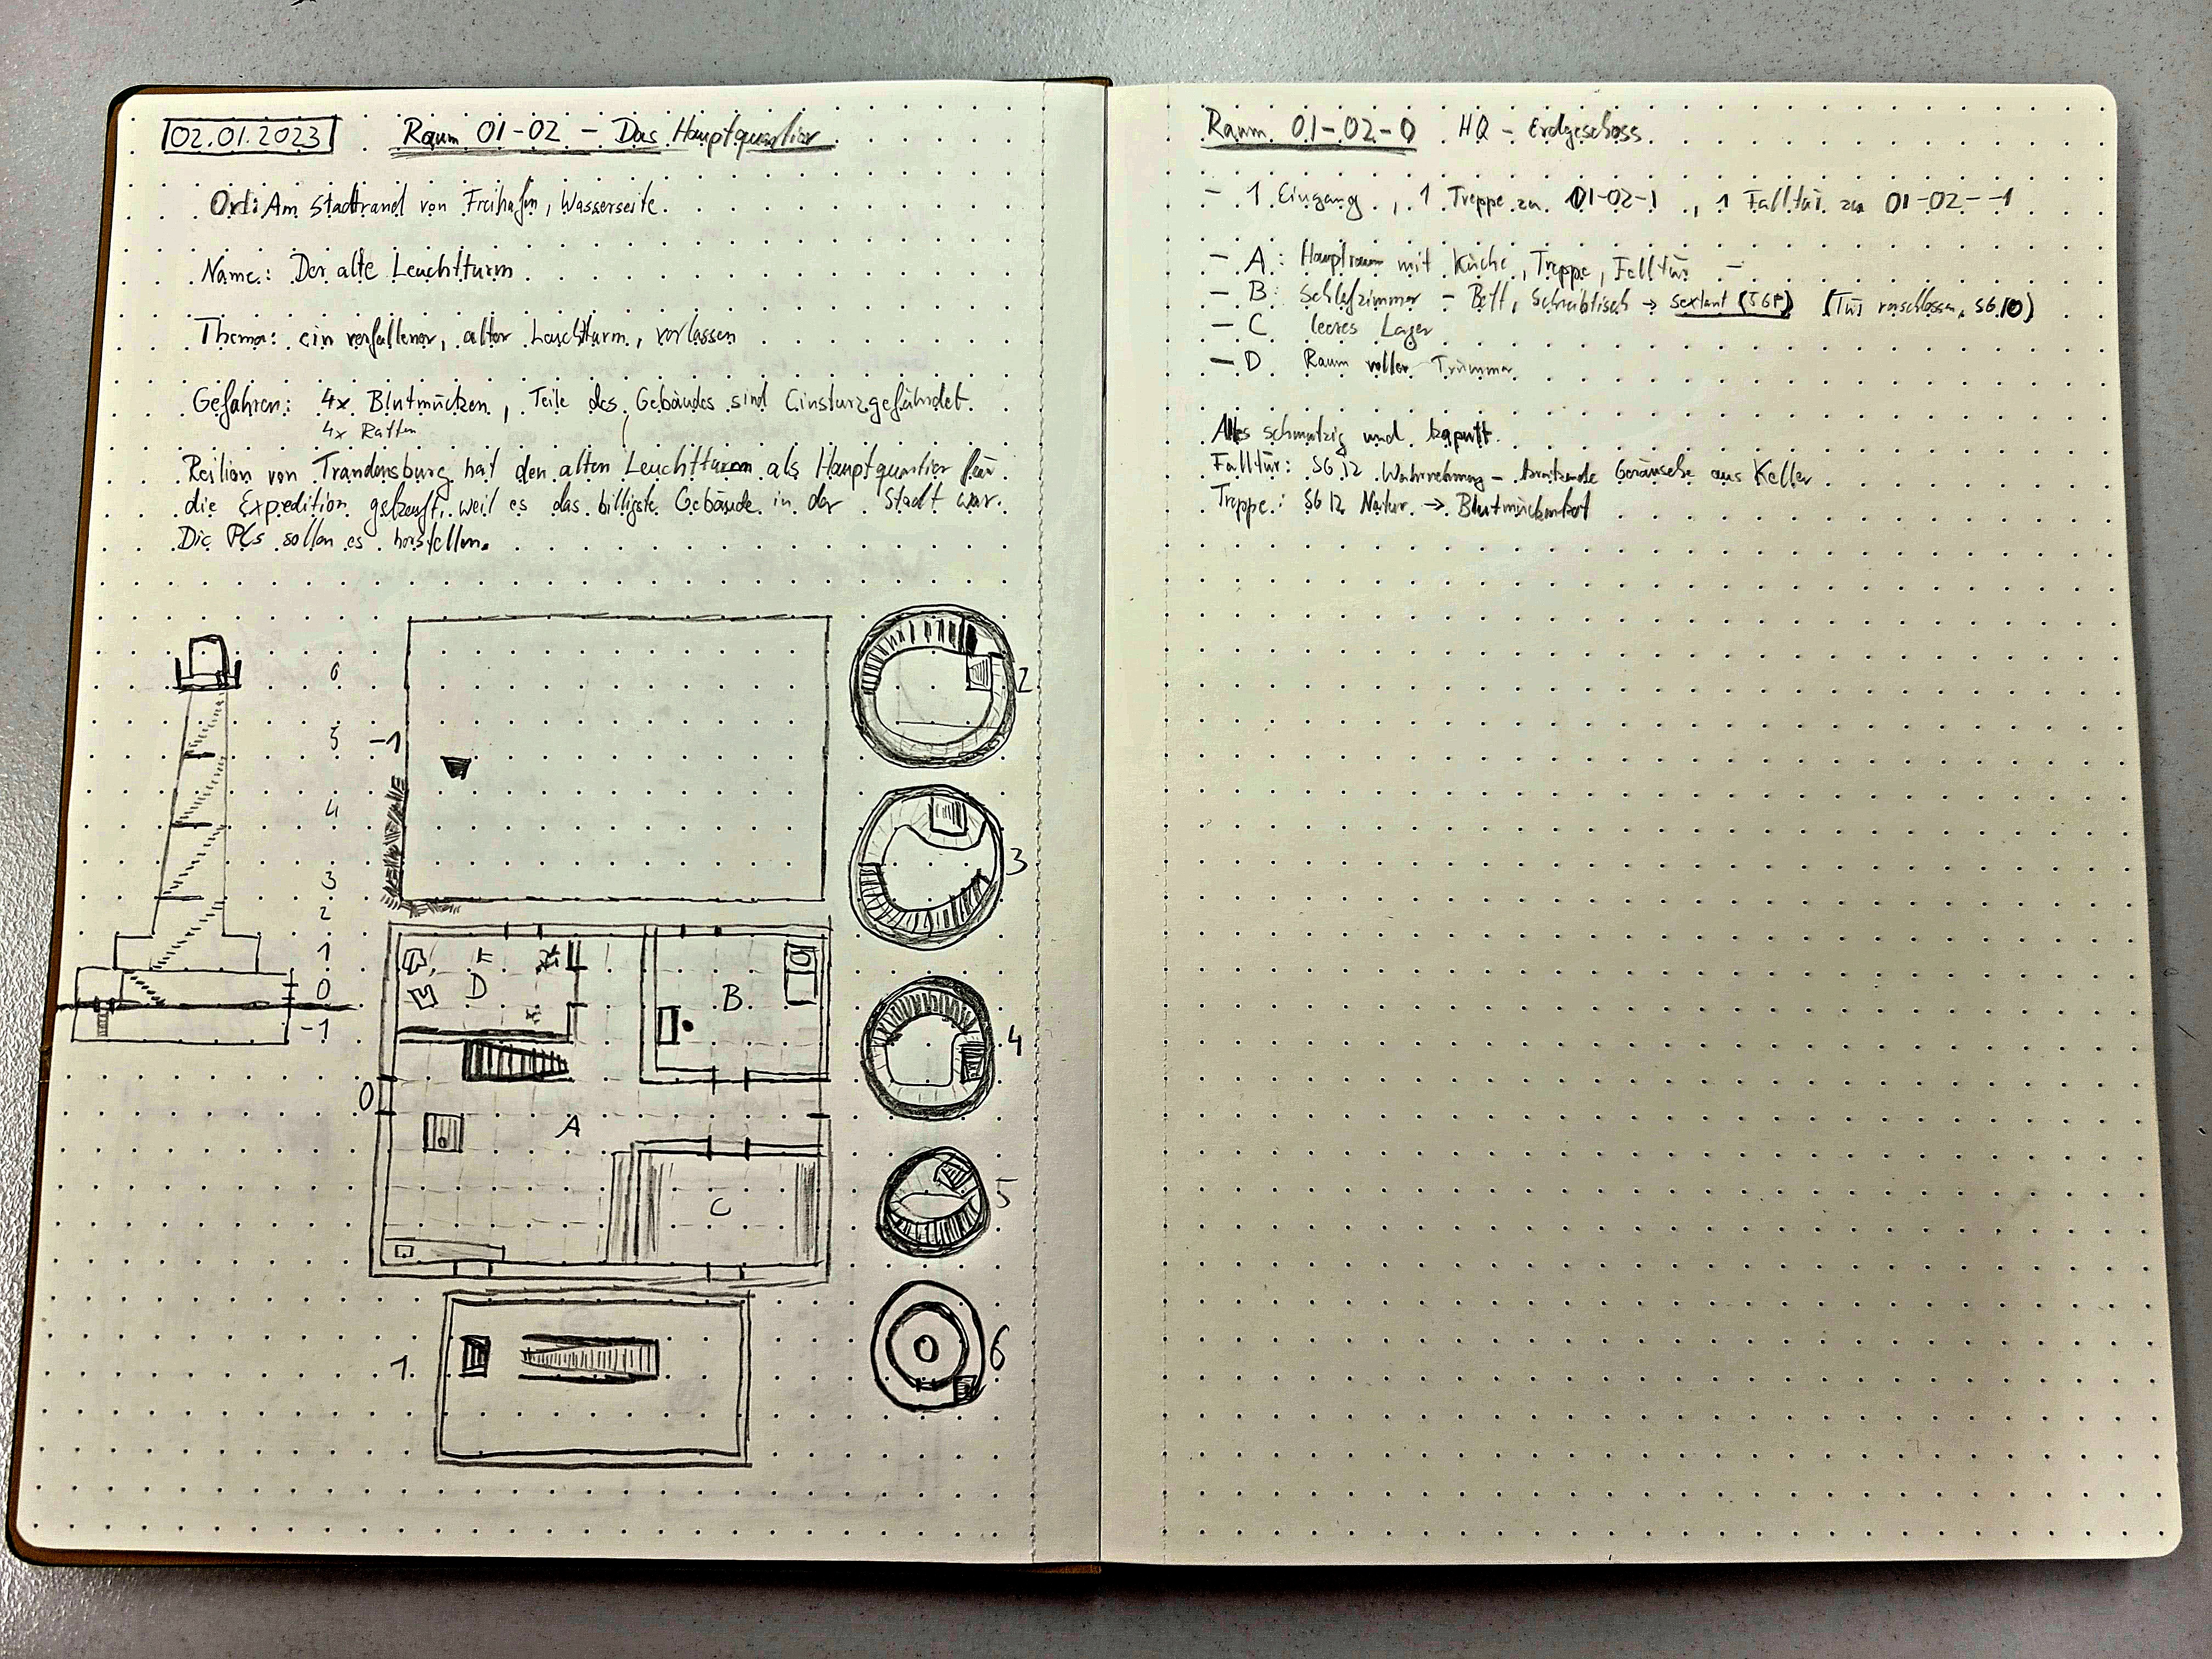 02.01.2023 Raum 01-02 - Das Hauptquartier
Ort: Am Stadtrand von Freihafen, Wasserseite.
Name: Der alte Leuchtturm
Thema: ein verfallener, alter Leuchtturm, verlassen
Gefahren: 4x Blutmücken, Teile des Gebäudes sind Einsturzgefährdet.
4x Ratten
Reilion von Trandensburg hat den alten Leuchtturm als Hauptquartier für
die Expedition gekauft, weil es das billigste Gebäude in der Stadt war.
Die PCs sollen es herstellen.
6
5
4
3
2
1
0
-1
-1
2
3
D
B
4
0
A
5
C
1
6
Raum 01-02-0 HQ - Erdgeschoss
- 1 Eingang, 1 Treppe zu 01-02-1, 1 Falltür zu 01-02--1
- A: Hauptraum mit Küche, Treppe, Falltür -
- B: Schlafzimmer - Bett, Schreibtisch → Sextant (5GP) (Tür verschlossen, SG10)
- C leeres Lager
- D Raum voller Trümmer
Alles schmutzig und kaputt.
Falltür: SG 12 Wahrnehmung - kratzende Geräusche aus Keller
Treppe: SG 12 Natur → Blutmückenkot